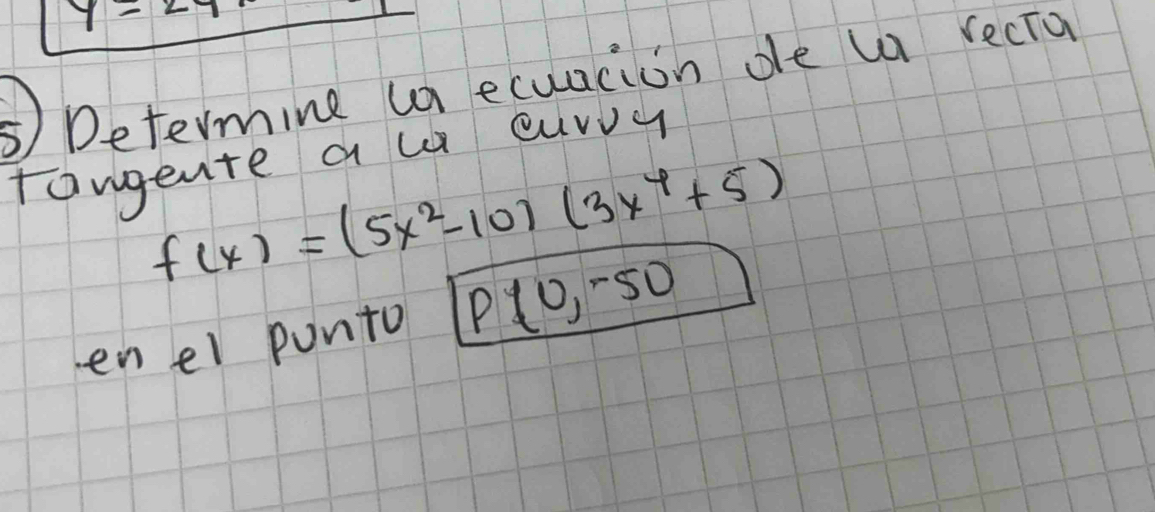 y = 24
5) Determine la ecuación de la recta
tangente a la curva
f(x) = (5x²-10) (3x⁴+5)
en el punto P(0,-50)